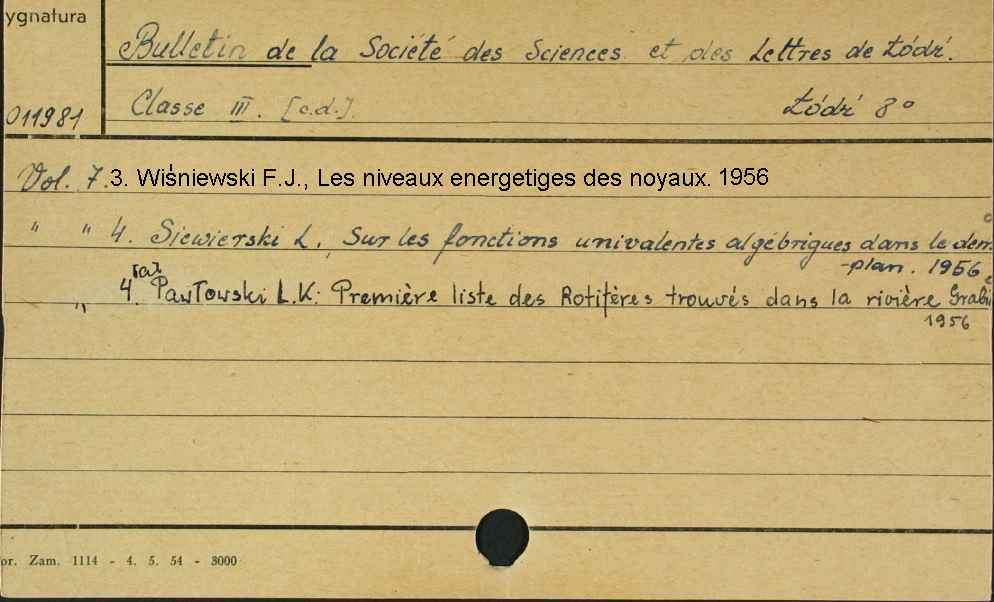 ygnatura
Bulletin de la Société des Sciences et des Lettres de Łódź.
011981
Classe III. [c.d.]. Łódź 8°
Vol. 7. 3. Wiśniewski F.J., Les niveaux energetiges des noyaux. 1956
" " 4. Siewierski L, Sur les fonctions univalentes algébrigues dans le dem
-plan. 1956
" 4.[a] Pawłowski L.K: Première liste des Rotifères trouvés dans la rivière Grabi
1956
or. Zam. 1114 - 4. 5. 54 - 3000